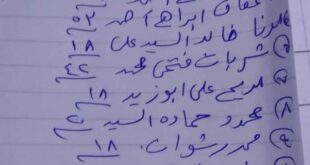 عفاف ابراهيم احمد ٥٢
لدنا خالد السيد على ١٨
٦ شربات فتحى محمد ٤٢
مديح على ابوزيد ١٨
٨ محمود حماده السيد
٩ محمد رشوان ١٨